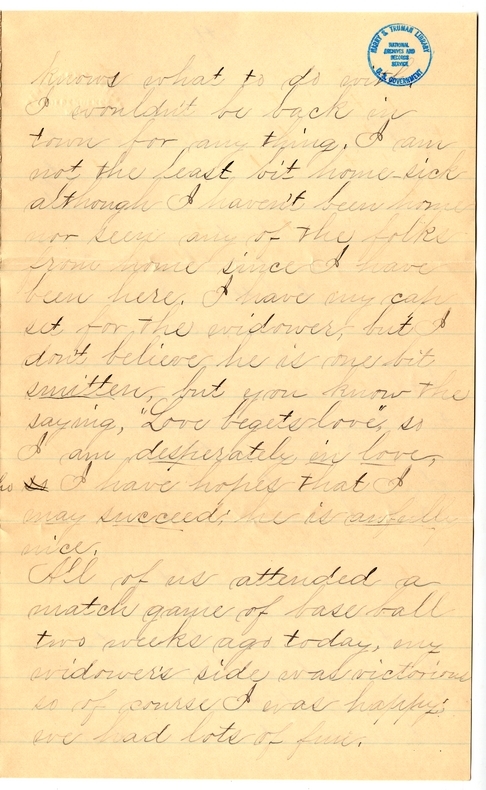 HARRY S. TRUMAN LIBRARY
NATIONAL
ARCHIVES AND
RECORDS
SERVICE
U.S. GOVERNMENT
knows what to do with,
I wouldn't be back in
town for any thing. I am
not the least bit home-sick
although I haven't been home
nor seen any of the folks
from home since I have
been here. I have my cap
set for the widower, but I
don't believe he is one bit
smitten, but you know the
saying, "Love begets love", so
I am desperately in love,
so I have hopes that I
may succeed; he is awfully
nice.
All of us attended a
match game of base ball
two weeks ago today, my
widower's side was victorious
so of course I was happy;
we had lots of fun.